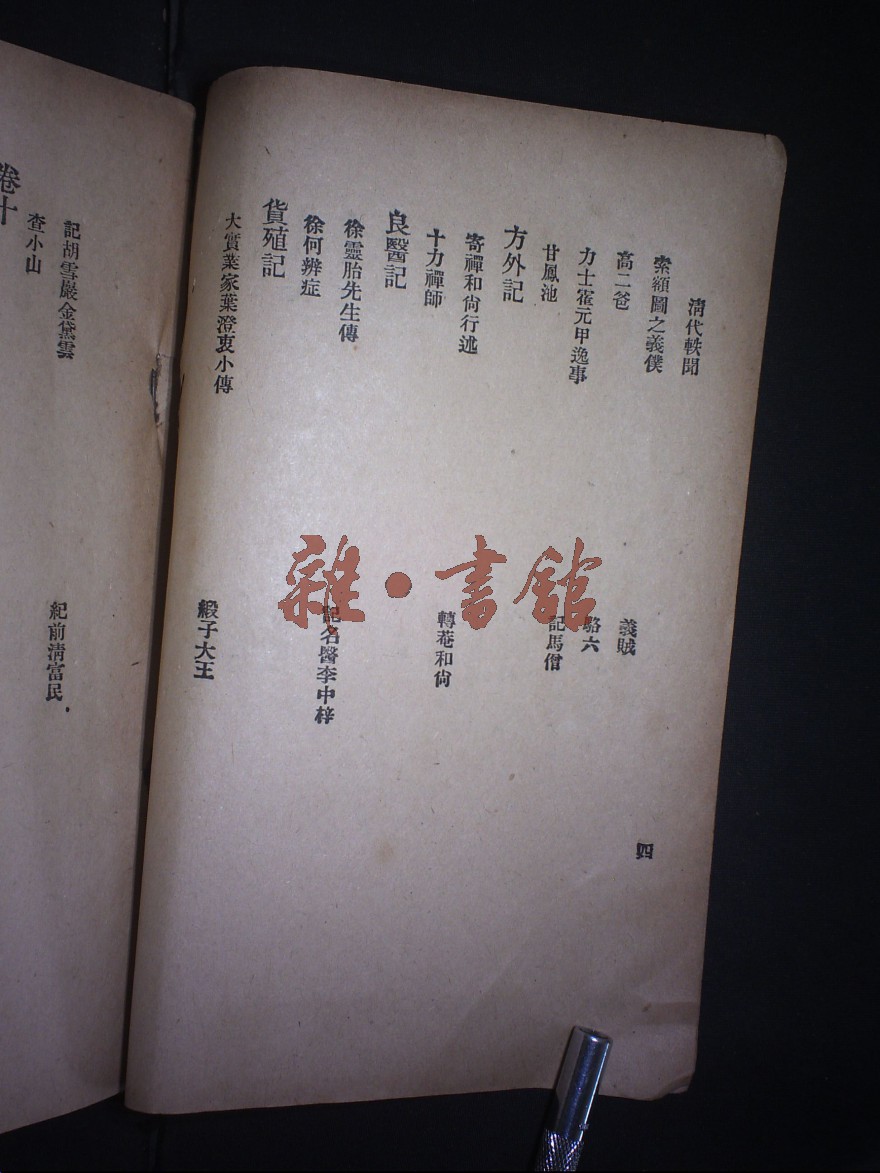 清代軼聞
四
索額圖之義僕
義賊
高二爸
駱六
力士霍元甲逸事
記馬僧
甘鳳池
方外記
寄禪和尙行述
轉菴和尙
十力禪師
良醫記
徐靈胎先生傳
記名醫李中梓
徐何辨症
貨殖記
大實業家葉澄衷小傳
緞子大王
記胡雪巖金黛雲
紀前淸富民
查小山
卷十
雜·書館